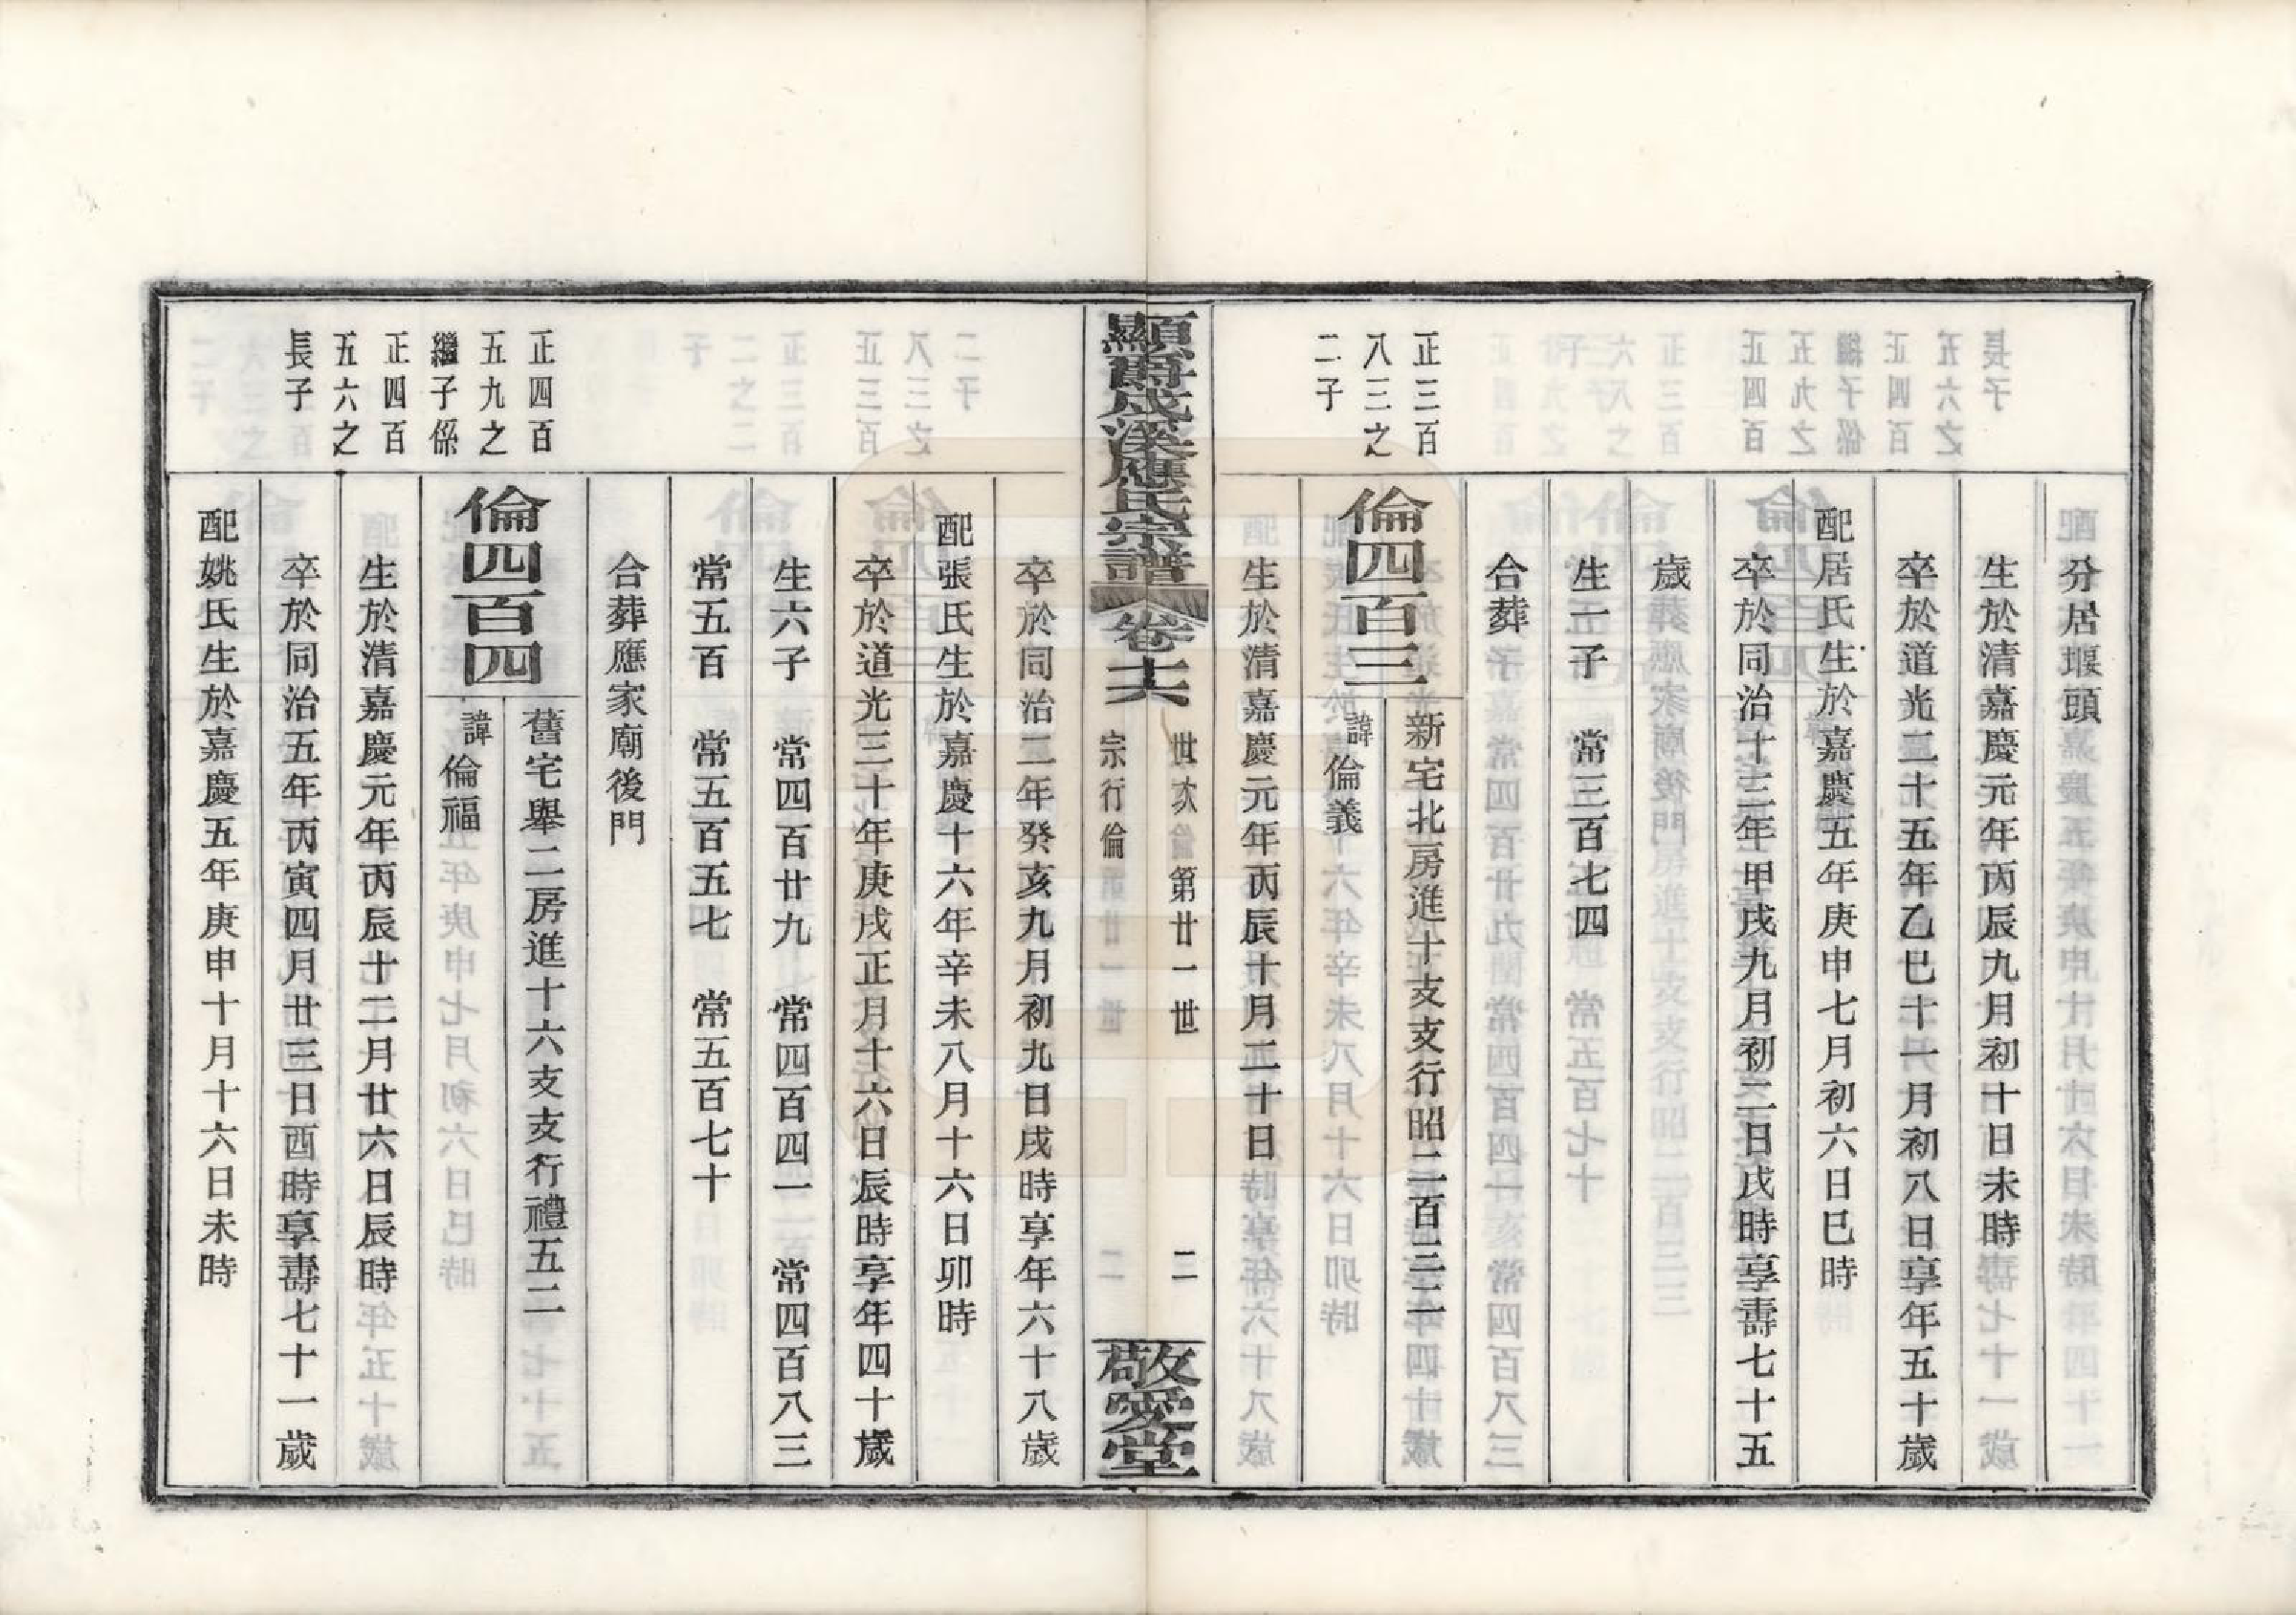 分居堰頭
生於清嘉慶元年丙辰九月初十日未時
卒於道光二十五年乙巳十一月初八日享年五十歲
配居氏生於嘉慶五年庚申七月初六日巳時
卒於同治十三年甲戌九月初二日戌時享壽七十五
歲
生一子　常三百七四
合葬
正三百
八三之
二子
倫四百三
新宅北房進十支支行昭二百三二
諱倫義
生於清嘉慶元年丙辰十月二十日
顯爵茂溪應氏宗譜
卷十六
世次　第廿一世
宗行倫
二
敬愛堂
卒於同治二年癸亥九月初九日戌時享年六十八歲
配張氏生於嘉慶十六年辛未八月十六日卯時
卒於道光三十年庚戌正月十六日辰時享年四十歲
生六子　常四百廿九　常四百四一　常四百八三
常五百　常五百五七　常五百七十
合葬應家廟後門
正四百
五九之
繼子係
正四百
五六之
長子
倫四百四
舊宅舉二房進十六支支行禮五二
諱倫福
生於清嘉慶元年丙辰十二月廿六日辰時
卒於同治五年丙寅四月廿三日酉時享壽七十一歲
配姚氏生於嘉慶五年庚申十月十六日未時